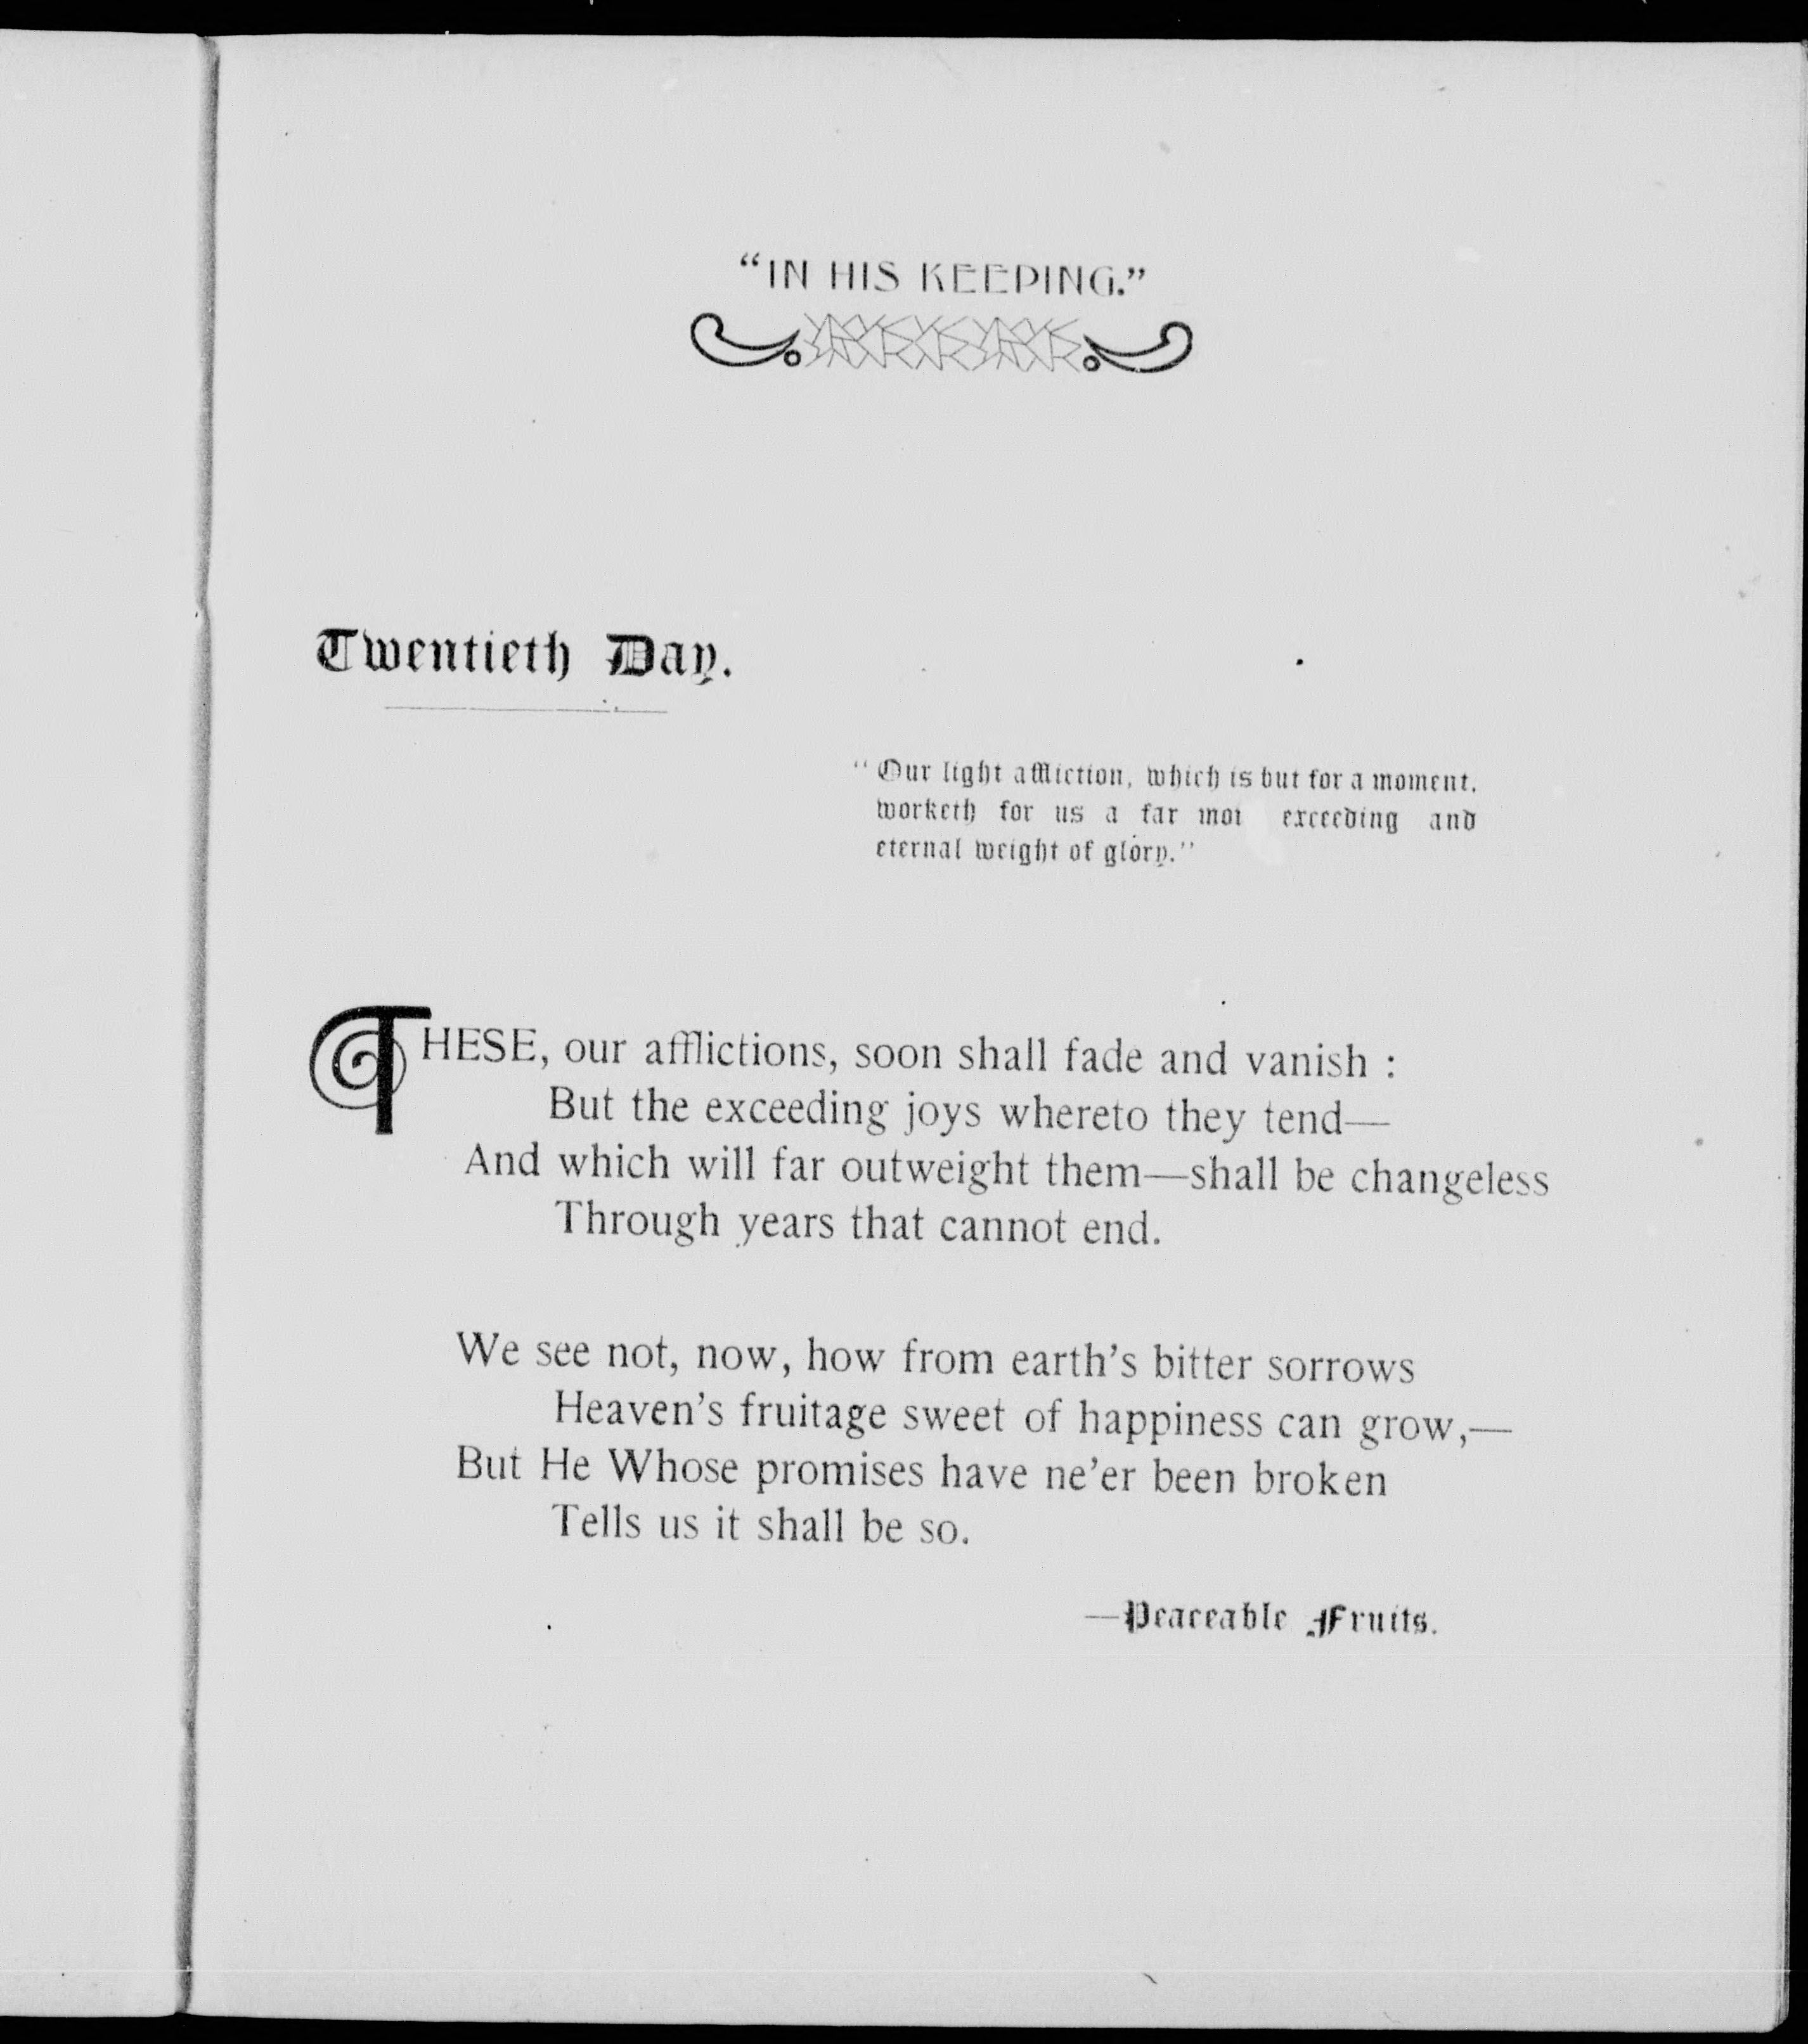 “IN HIS KEEPING.”
Twentieth Day.
“Our light affliction, which is but for a moment,
worketh for us a far mor exceeding and
eternal weight of glory.”
THESE, our afflictions, soon shall fade and vanish :
But the exceeding joys whereto they tend—
And which will far outweight them—shall be changeless
Through years that cannot end.
We see not, now, how from earth’s bitter sorrows
Heaven’s fruitage sweet of happiness can grow,—
But He Whose promises have ne’er been broken
Tells us it shall be so.
—Peaceable Fruits.